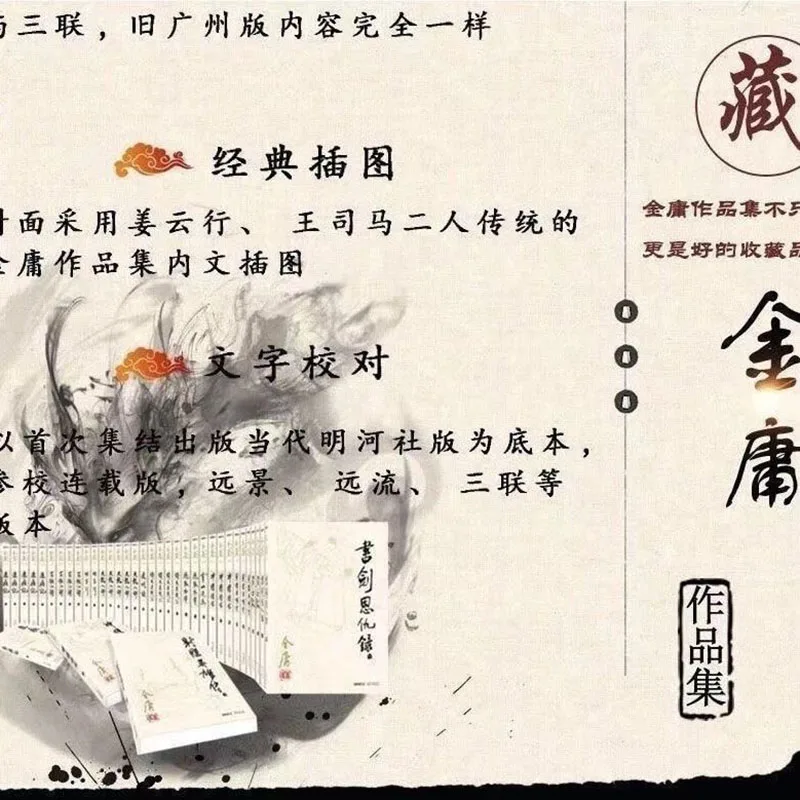 与三联，旧广州版内容完全一样
经典插图
封面采用姜云行、 王司马二人传统的
金庸作品集内文插图
文字校对
以首次集结出版当代明河社版为底本，
参校连载版，远景、 远流、 三联等
版本
書劍恩仇錄
金庸
射鵰英雄傳
金庸
藏
金庸作品集不只
更是好的收藏品
金庸
作品集